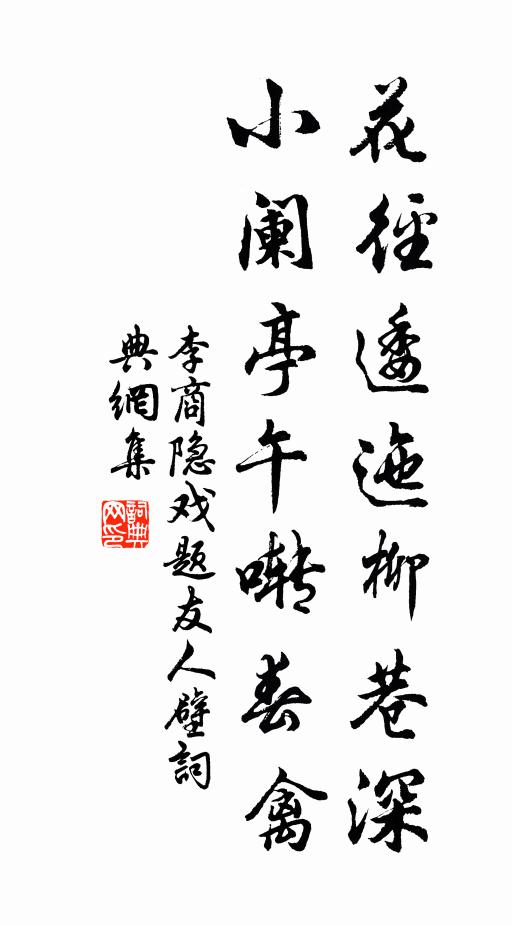 花徑逶迤柳巷深
小阑亭午啭春禽
李商隐戏题友人壁詞
典網集
詞典
网印